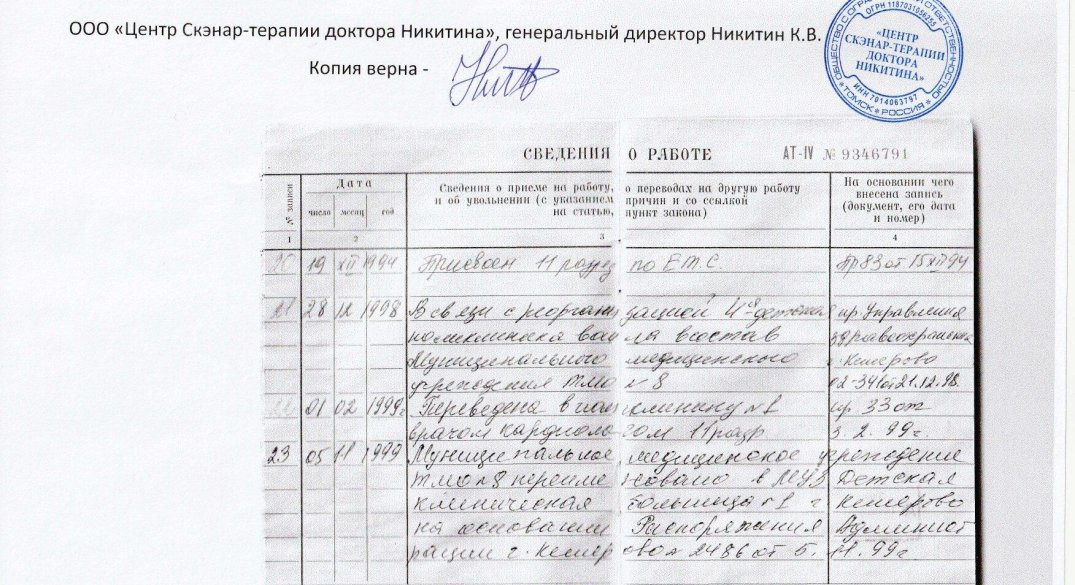 ООО «Центр Скэнар-терапии доктора Никитина», генеральный директор Никитин К.В.
Копия верна -
ОБЩЕСТВО С ОГРАНИЧЕННОЙ ОТВЕТСТВЕННОСТЬЮ
ОГРН 1187031056255
«ЦЕНТР
СКЭНАР-ТЕРАПИИ
ДОКТОРА
НИКИТИНА»
ИНН 7014063797
ТОМСК РОССИЯ
СВЕДЕНИЯ О РАБОТЕ AT-IV № 9346791
№ записи
Дата
число месяц год
Сведения о приеме на работу, о переводах на другую работу
и об увольнении (с указанием причин и со ссылкой
на статью, пункт закона)
На основании чего
внесена запись
(документ, его дата
и номер)
1 2 3 4
20 19 XII 1994 Присвоен 11 разряд по Е.Т.С. Пр 83 от 15 XII 94
21 28 12 1998 В связи с реорганизацией 4-й детская пр. Управления
поликлиника вошла в состав здравоохранения
Муниципального медицинского г. Кемерово
учреждения ТМО № 8 02-341 от 21.12.98
22 01 02 1999г Переведена в поликлинику № 1 пр 33 от
врачом кардиологом 11 разр 3.2.99г.
23 05 11 1999 Муниципальное медицинское учреждение
ТМО № 8 переименовано в МУЗ Детская
клиническая больница № 1 г Кемерово
на основании Распоряжения Админист
рации г. Кемерово № 2486 от 5.11.99г.